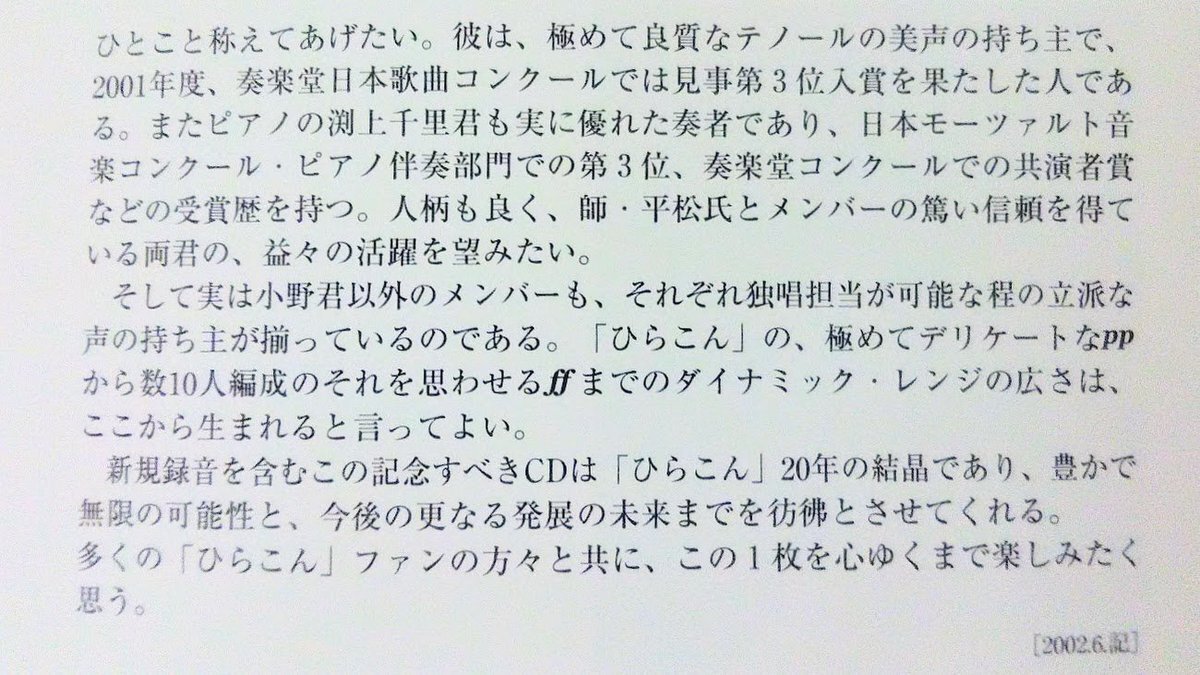 ひとこと称えてあげたい。彼は、極めて良質なテノールの美声の持ち主で、
2001年度、奏楽堂日本歌曲コンクールでは見事第3位入賞を果たした人であ
る。またピアノの渕上千里君も実に優れた奏者であり、日本モーツァルト音
楽コンクール・ピアノ伴奏部門での第3位、奏楽堂コンクールでの共演者賞
などの受賞歴を持つ。人柄も良く、師・平松氏とメンバーの篤い信頼を得て
いる両君の、益々の活躍を望みたい。
そして実は小野君以外のメンバーも、それぞれ独唱担当が可能な程の立派な
声の持ち主が揃っているのである。「ひらこん」の、極めてデリケートなpp
から数10人編成のそれを思わせるffまでのダイナミック・レンジの広さは、
ここから生まれると言ってよい。
新規録音を含むこの記念すべきCDは「ひらこん」20年の結晶であり、豊かで
無限の可能性と、今後の更なる発展の未来までを彷彿とさせてくれる。
多くの「ひらこん」ファンの方々と共に、この1枚を心ゆくまで楽しみたく
思う。
[2002.6.記]